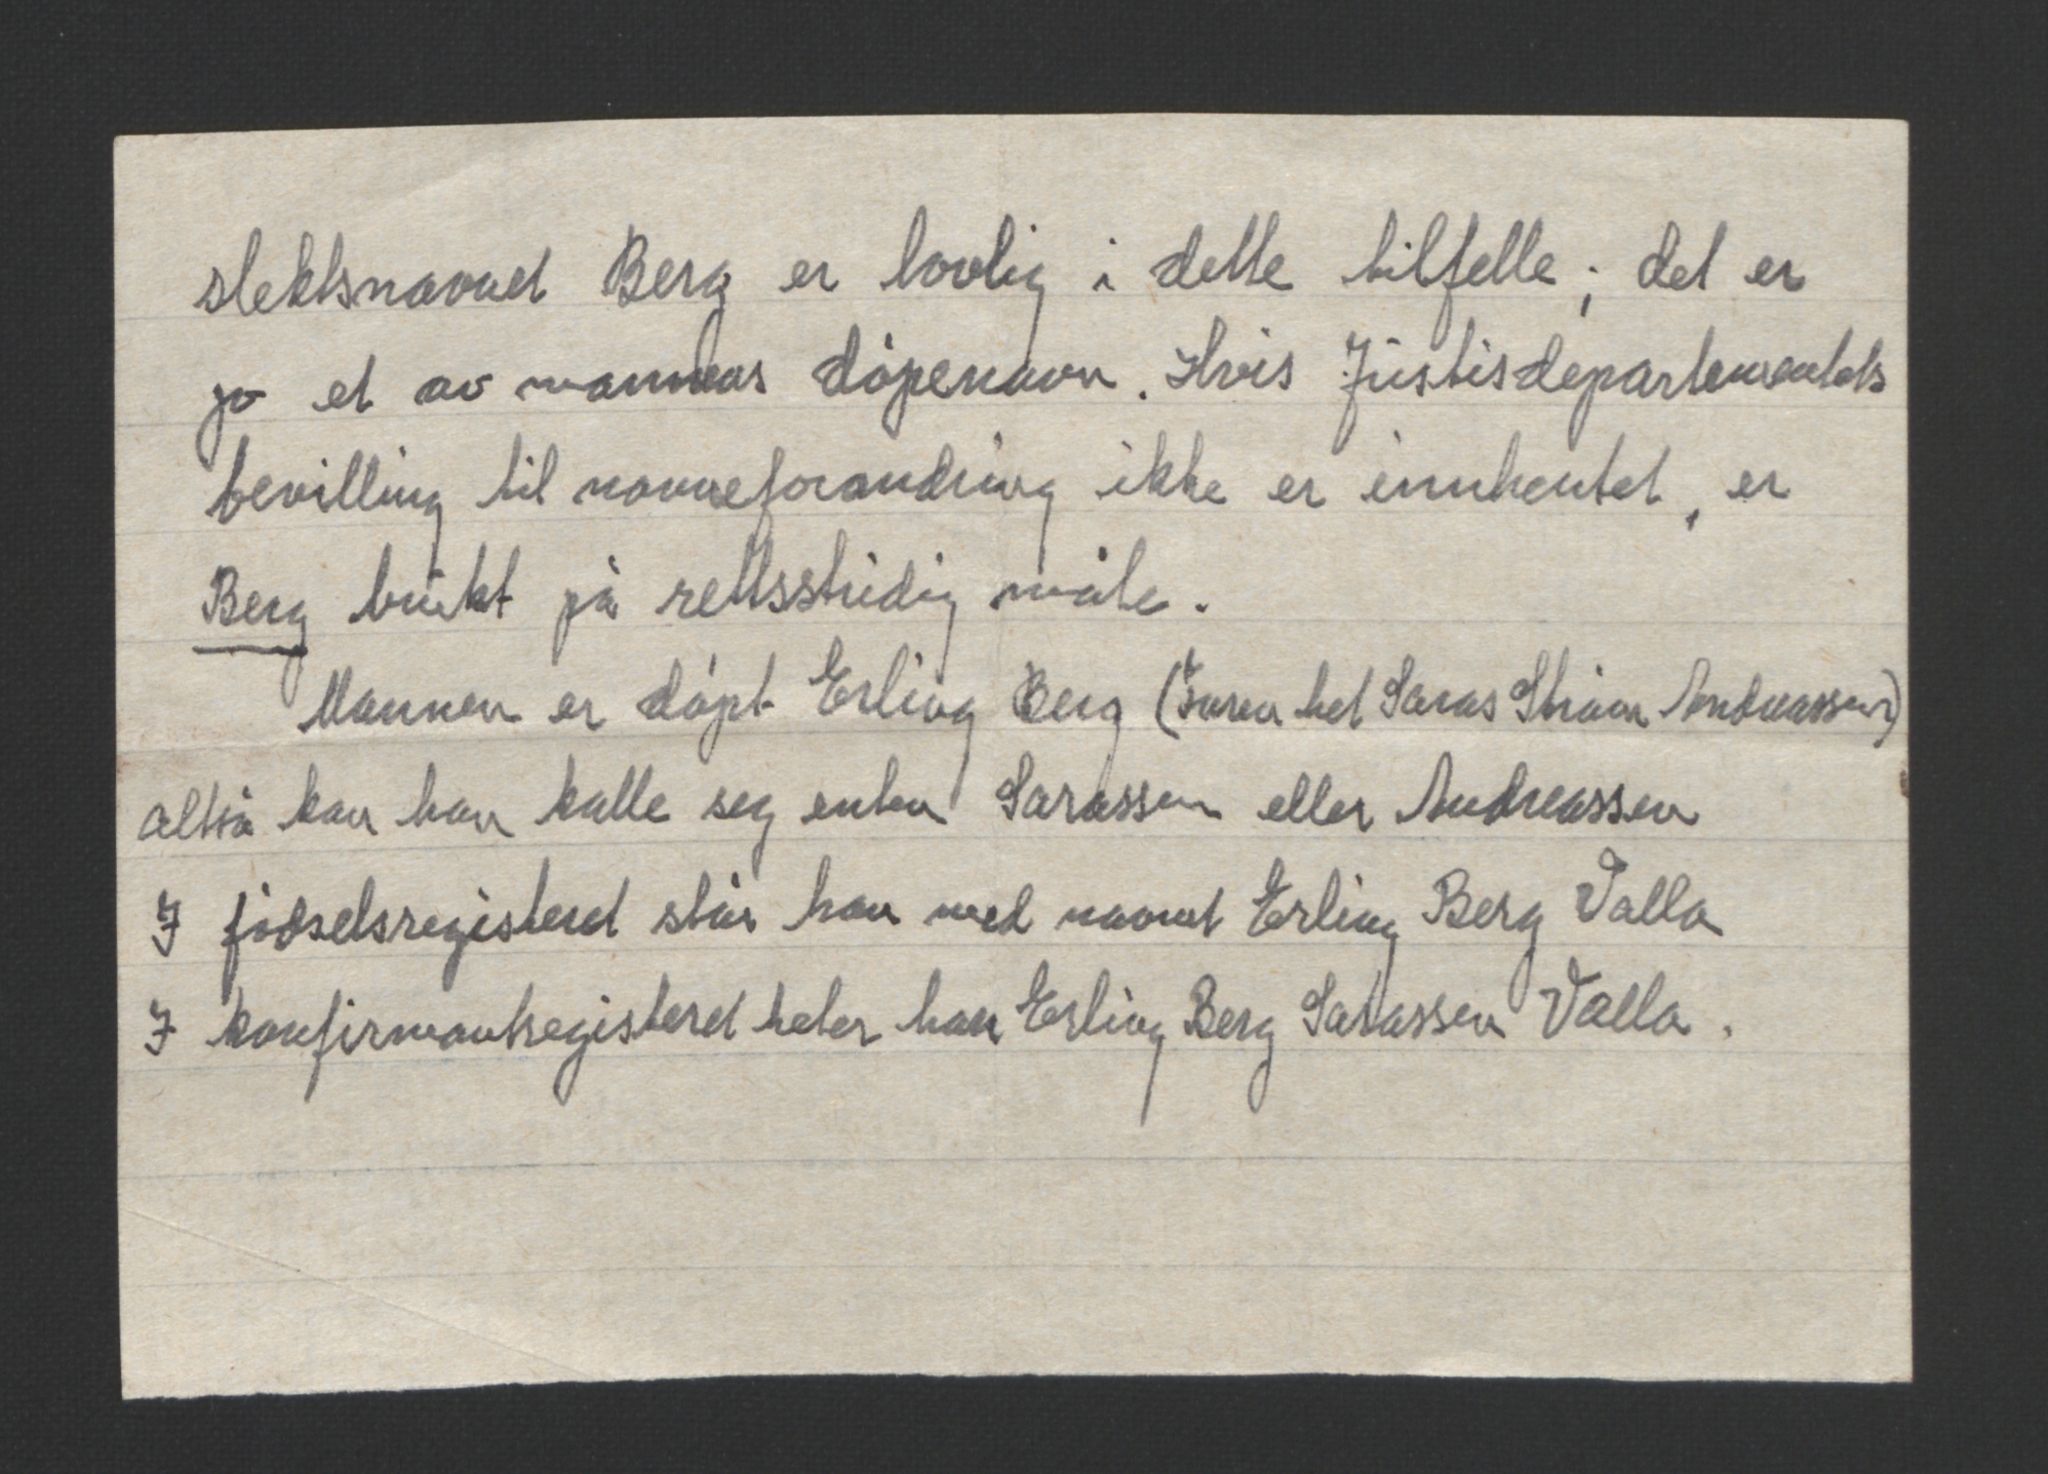 slektsnavnet Berg er lovlig i dette tilfelle; det er
jo et av mannens døpenavn. Hvis Justisdepartementets
bevilling til navneforandring ikke er innhentet, er
Berg brukt på rettsstridig måte.
Mannen er døpt Erling Berg (Faren het Saras Strøm Andreassen)
altså kan han kalle seg enten Sarassen eller Andreassen
I fødselsregisteret står han med navnet Erling Berg Valla
I konfirmantregisteret heter han Erling Berg Sarassen Valla.